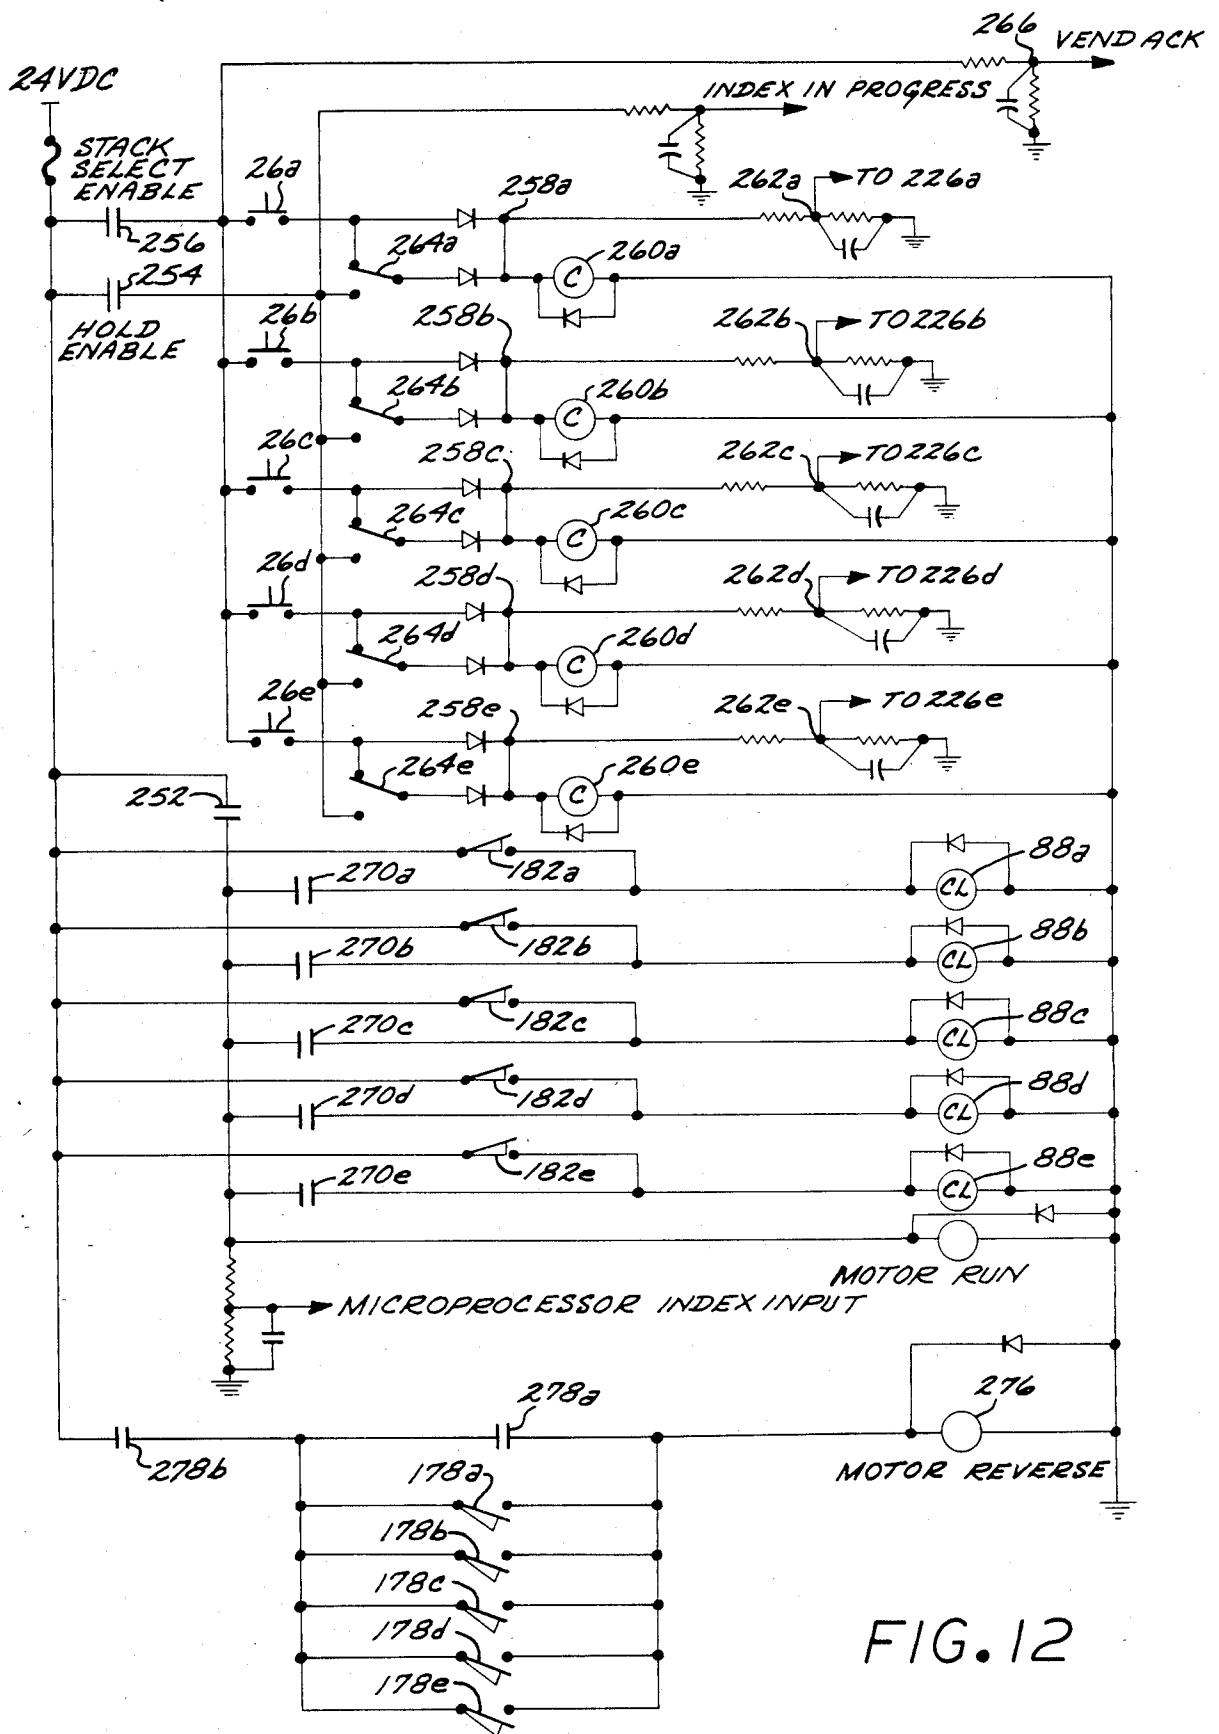 266
VEND ACK
24VDC
INDEX IN PROGRESS
STACK
SELECT
ENABLE
26a
258a
262a
TO 226a
256
264a
260a
254
HOLD
ENABLE
26b
258b
262b
TO 226b
264b
260b
26c
258c
262c
TO 226c
264c
C
260c
26d
258d
262d
TO 226d
264d
C
260d
26e
258e
262e
TO 226e
264e
C
260e
252
C
C
182a
88a
270a
CL
182b
88b
270b
CL
182c
88c
270c
CL
182d
88d
270d
CL
182e
88e
270e
CL
MOTOR RUN
MICROPROCESSOR INDEX INPUT
278a
276
278b
MOTOR REVERSE
178a
178b
178c
178d
178e
FIG. 12